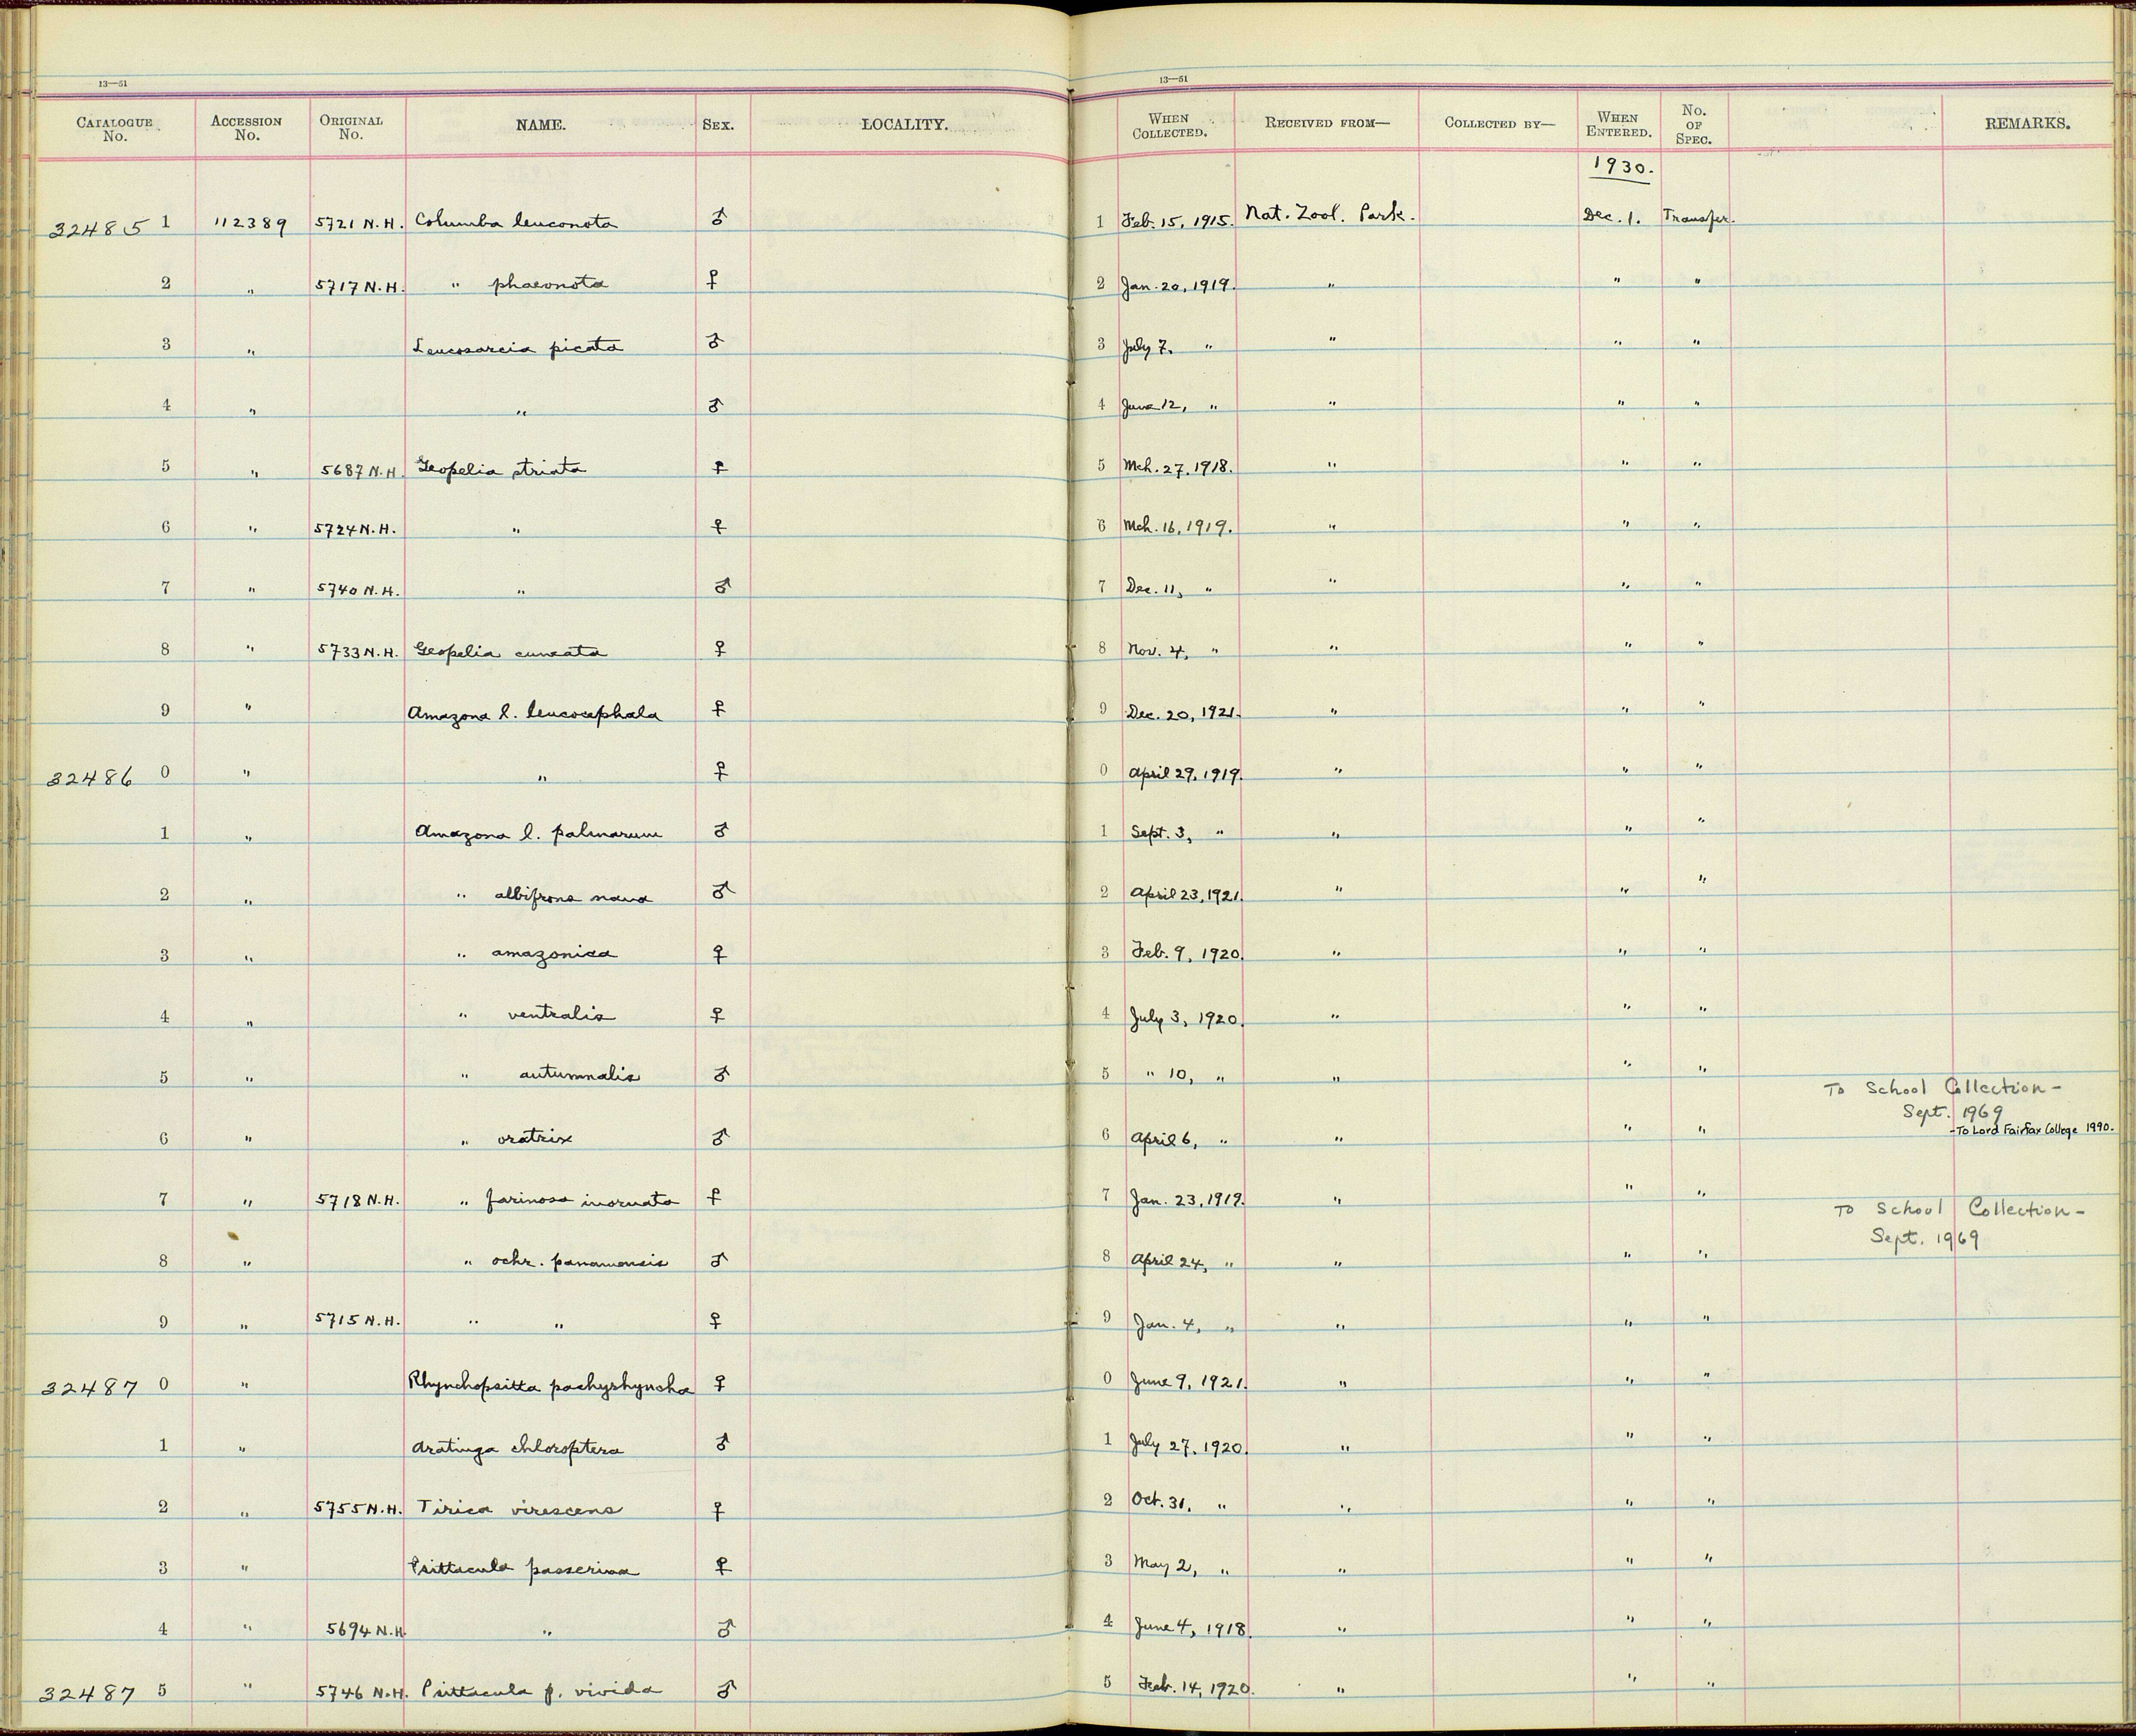 13—51 13—51
CATALOGUE No. ACCESSION No. ORIGINAL No. NAME. SEX. LOCALITY. WHEN COLLECTED. RECEIVED FROM— COLLECTED BY— WHEN ENTERED. No. OF SPEC. REMARKS.
1930.
32485 1 112389 5721 N.H. Columba leuconota ♂ 1 Feb. 15, 1915. Nat. Zool. Park. Dec. 1. Transfer.
2 " 5717 N.H. " phaeonota ♀ 2 Jan. 20, 1919. " " "
3 " Leucosarcia picata ♂ 3 July 7, " " " "
4 " " ♂ 4 June 12, " " " "
5 " 5687 N.H. Geopelia striata ♀ 5 Mch. 27, 1918. " " "
6 " 5724 N.H. " ♀ 6 Mch. 16, 1919. " " "
7 " 5740 N.H. " ♂ 7 Dec. 11, " " " "
8 " 5733 N.H. Geopelia cuneata ♀ 8 Nov. 4, " " " "
9 " Amazona l. leucocephala ♀ 9 Dec. 20, 1921. " " "
32486 0 " " ♀ 0 April 29, 1919. " " "
1 " Amazona l. palmarum ♂ 1 Sept. 3, " " " "
2 " " albifrons nana ♂ 2 April 23, 1921. " " "
3 " " amazonica ♀ 3 Feb. 9, 1920. " " "
4 " " ventralis ♀ 4 July 3, 1920. " " "
5 " " autumnalis ♂ 5 " 10, " " " "
To School Collection -
Sept. 1969
6 " " oratrix ♂ 6 April 6, " " " " -To Lord Fairfax College 1990.
7 " 5718 N.H. " farinosa inornata ♀ 7 Jan. 23, 1919. " " "
To School Collection -
Sept. 1969
8 " " ochr. panamensis ♂ 8 April 24, " " " "
9 " 5715 N.H. " " ♀ 9 Jan. 4, " " " "
32487 0 " Rhynchopsitta pachyrhyncha ♀ 0 June 9, 1921. " " "
1 " Aratinga chloroptera ♂ 1 July 27, 1920. " " "
2 " 5755 N.H. Tirica virescens ♀ 2 Oct. 31, " " " "
3 " Psittacula passerina ♀ 3 May 2, " " " "
4 " 5694 N.H. " ♂ 4 June 4, 1918. " " "
32487 5 " 5746 N.H. Psittacula p. vivida ♂ 5 Feb. 14, 1920. " " "